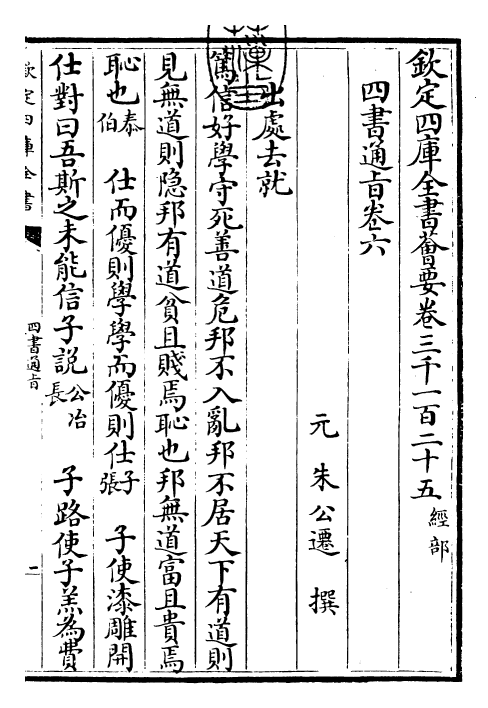 欽定四庫全書薈要卷三千一百二十五 經部
四書通旨卷六
元 朱公遷 撰
出處去就
篤信好學守死善道危邦不入亂邦不居天下有道則
見無道則隱邦有道貧且賤焉恥也邦無道富且貴焉
恥也 泰伯 仕而優則學學而優則仕 子張 子使漆雕開
仕對曰吾斯之未能信子說 公冶長 子路使子羔為費
欽定四庫全書
四書通旨
一